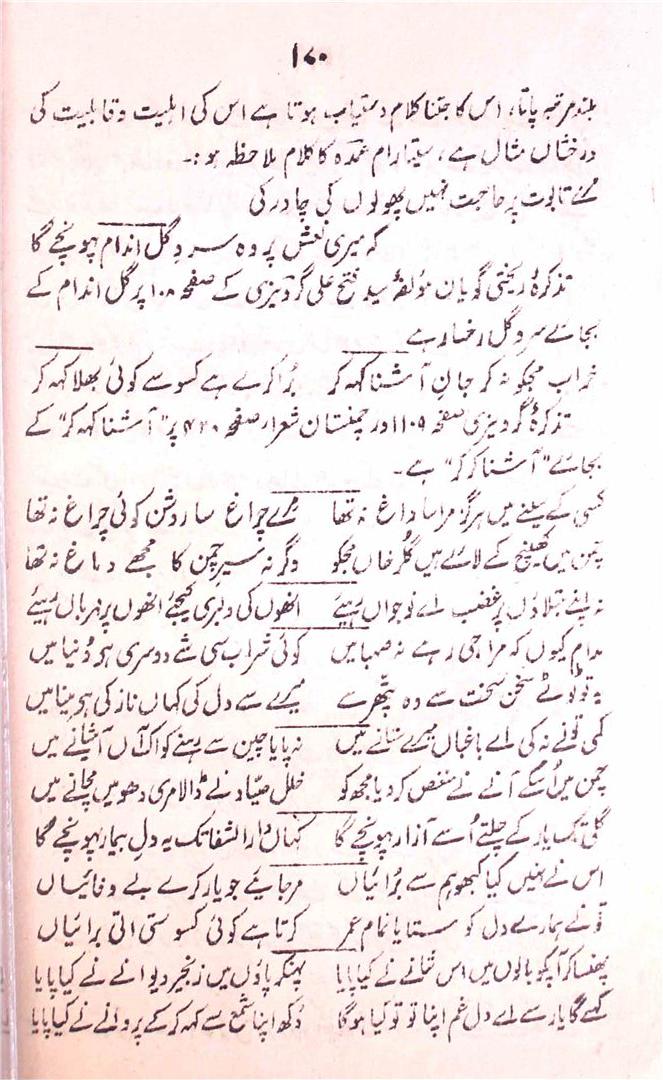 ۱۷۰
بلند مرتبہ پاتا، اس کا جتنا کلام دستیاب ہوتا ہے اس کی اہلیت و قابلیت کی
درخشاں مثال ہے، سیتارام عمدہ کا کلام ملاحظہ ہو:۔
مرے تابوت پر حاجت نہیں پھولوں کی چادر کی
کہ میری نعش پر وہ سرو گل اندام پہونچے گا
تذکرۂ ریختی گویان مؤلفۂ سید فتح علی گردیزی کے صفحہ ۱۰۸ پر گل اندام کے
بجائے سرو گل رخسار ہے
خراب مجکو نہ کر جانِ آشنا کہہ کر بُرا کرے ہے کسو سے کوئی بھلا کہہ کر
تذکرۂ گردیزی صفحہ ۱۱۰۹ور چمنستان شعرار صفحہ ۴۲۰ پر "آشنا کہہ کر" کے
بجائے "آشنا کر کر" ہے۔
کسی کے سینے میں ہرگز مرا سا داغ نہ تھا مرے چراغ سا روشن کوئی چراغ نہ تھا
چمن میں کھینچ کے لائے ہیں گلرخاں مجکو وگرنہ سیر چمن کا مجھے دماغ نہ تھا
نہ اپنے مبتلاؤں پر غضب اے نوجواں رہیئے انھوں کی دلبری کیجئے انھوں پر مہرباں رہیئے
مدام کیوں کہ مرا جی رہے نہ صہبا میں کوئی شراب سی شے دوسری ہو دُنیا میں
یہ توڑئے سخن سخت سے وہ پتھر ہے میرے سے دل کی کہاں نازکی ہو مینا میں
کمی تونے نہ کی اے باغباں میرے ستانے میں نہ پایا چین سے رہنے کو اک آں آشیانے میں
چمن میں اُسکے آنے نے منغص کر دیا مجھ کو خلل صیاد نے ڈالا مری دھومیں مچانے میں
گلی تک یار کے چلتے اُسے آزار پہونچے گا کہاں دار الشفا تک یہ دلِ بیمار پہونچے گا
اس نے نہیں کیا کبھو ہم سے بُرائیاں مر جایئے جو یار کرے بے وفائیاں
تونے ہمارے دل کو ستایا تمام عمر کرتا ہے کوئی کسو ستی اتی برائیاں
پھنسا کر آپکو بالوں میں اس شانے نے کیا پایا پہنکر پاؤں میں زنجیر دیوانے نے کیا پایا
کہے گا یار سے اے دل غم اپنا تو تو کیا ہوگا دُکھ اپنا شمع سے کہہ کر کے پروانے نے کیا پایا